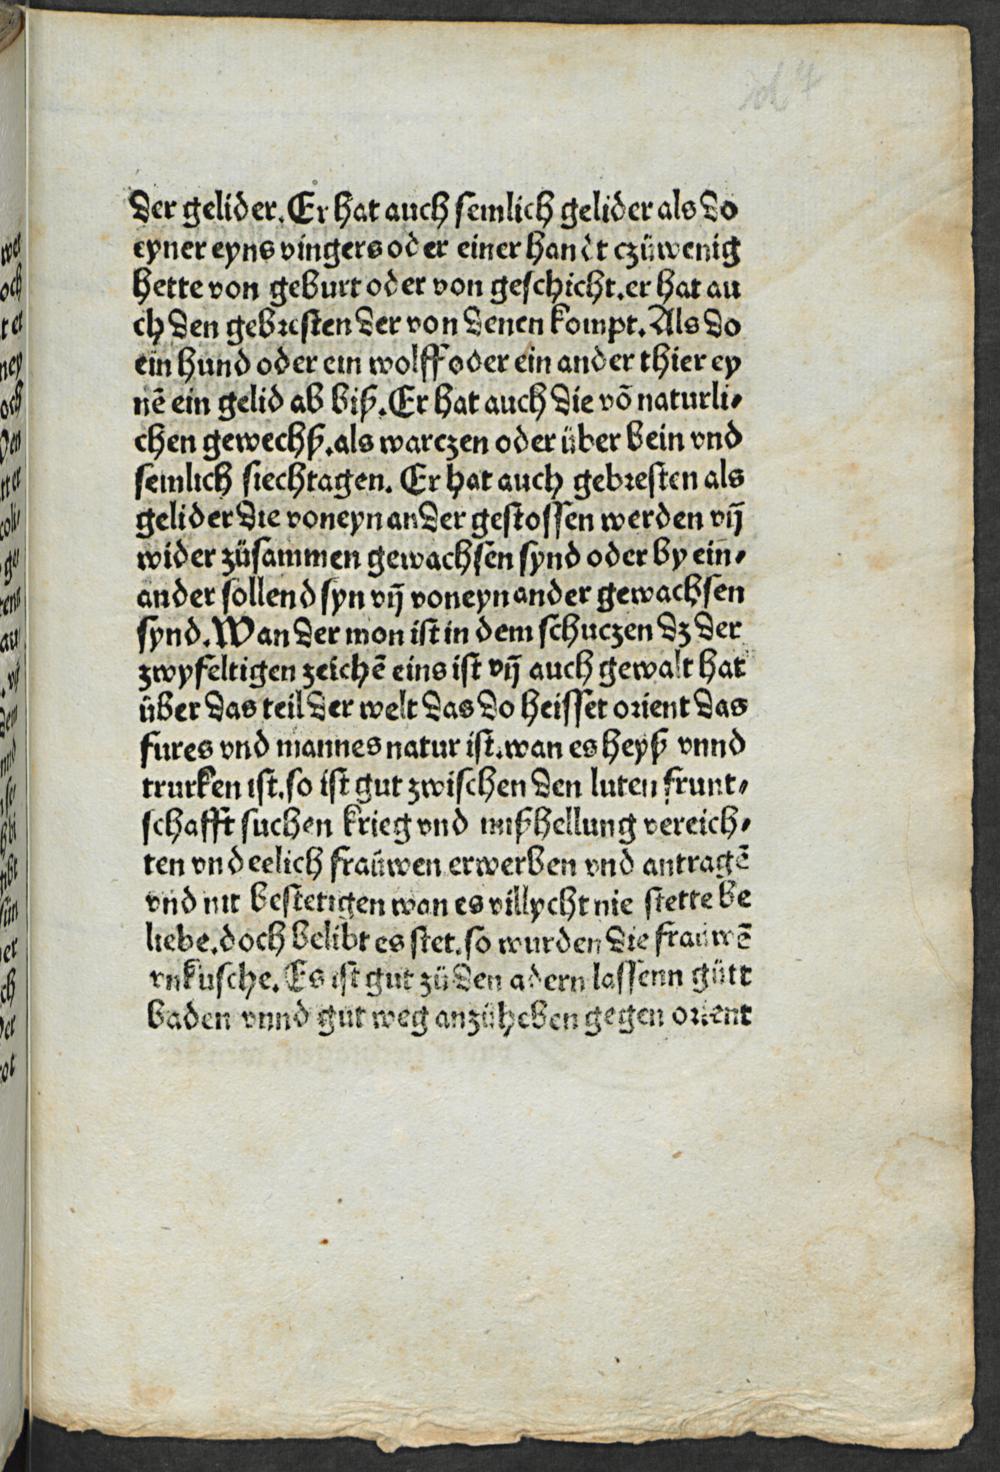 der gelider. Er hat auch semlich gelider als do
eyner eyns vingers oder einer handt czů wenig
hette von geburt oder von geschicht. er hat au
ch den gebresten der von denen kompt. Als do
ein hund oder ein wolff oder ein ander thier ey
nē ein gelid ab biß. Er hat auch die vō naturli⸗
chen gewechß. als warczen oder über bein vnd
semlich siechtagen. Er hat auch gebresten als
gelider die voneynander gestossen werden vn̄
wider zůsammen gewachsen synd oder by ein⸗
ander sollend syn vn̄ voneynander gewachsen
synd. Wan der mon ist in dem schuczen dz der
zwyfeltigen zeichē eins ist vn̄ auch gewalt hat
über das teil der welt das do heisset orient das
fures vnd mannes natur ist. wan es heyß vnnd
trurken ist. so ist gut zwischen den luten frunt⸗
schafft suchen krieg vnd mißhellung vereich⸗
ten vnd eelich fraůwen erwerben vnd antragē
vnd nit bestetigen wan es villycht nie stette be
liebe. doch belibt es stet. so wurden die fraůwē
vnkusche. Es ist gut zů den adern lassenn gůtt
baden vnnd gut weg anzůheben gegen orient